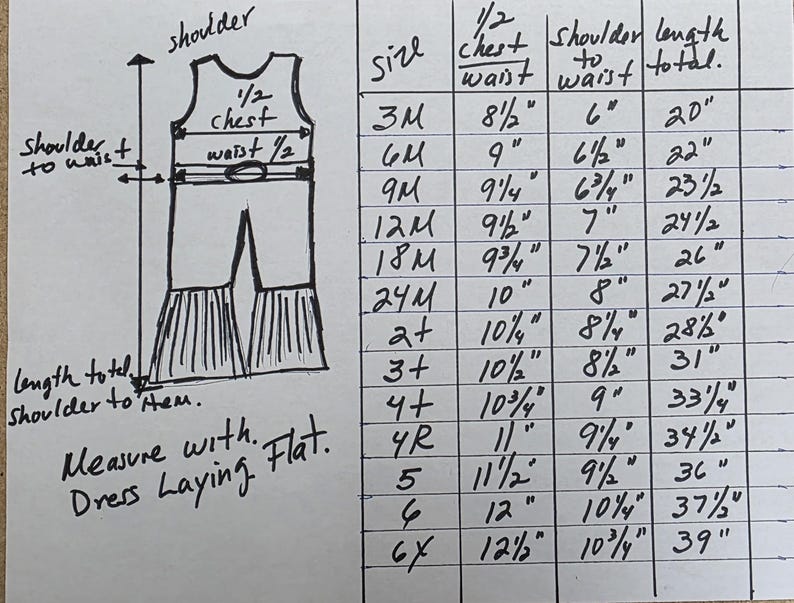 shoulder
1/2
chest
waist 1/2
shoulder
to waist
length total
shoulder to Hem.
Measure with.
Dress Laying Flat.
size | 1/2 chest/waist | shoulder to waist | length total.
3M | 8 1/2" | 6" | 20"
6M | 9" | 6 1/2" | 22"
9M | 9 1/4" | 6 3/4" | 23 1/2
12M | 9 1/2" | 7" | 24 1/2
18M | 9 3/4" | 7 1/2" | 26"
24M | 10" | 8" | 27 1/2"
2t | 10 1/4" | 8 1/4" | 28 1/2"
3t | 10 1/2" | 8 1/2" | 31"
4t | 10 3/4" | 9" | 33 1/4"
4R | 11" | 9 1/4" | 34 1/2"
5 | 11 1/2" | 9 1/2" | 36"
6 | 12" | 10 1/4" | 37 1/2"
6X | 12 1/2" | 10 3/4" | 39"